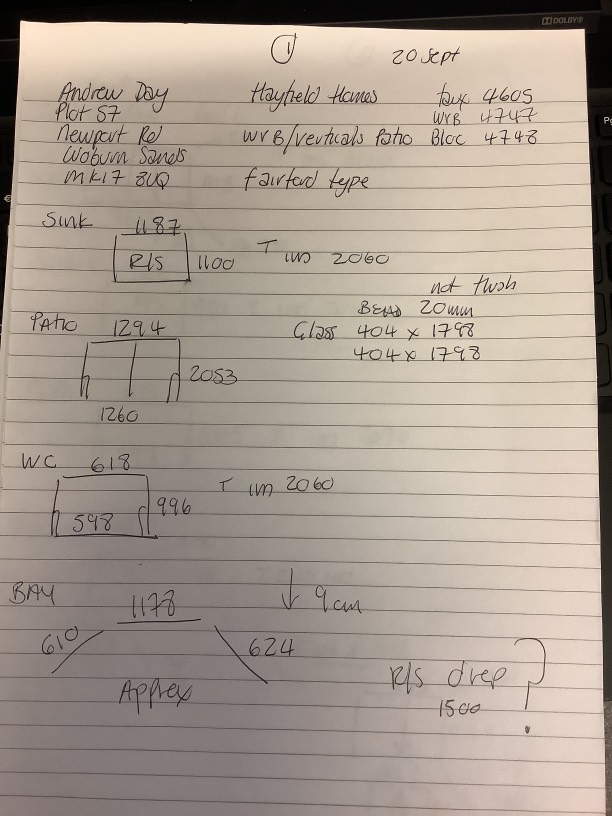 DOLBY
1 20 Sept
Andrew Day Hayfield Homes faux 4605
Plot 57 WVB 4747
Newport Rd WVB/verticals Patio Bloc 4748
Woburn Sands
MK17 8UQ Fairford type
Sink 1187
R/S 1100 T 2060
not flush
BEAD 20mm
PAtio 1294 Glass 404 x 1798
404 x 1798
2053
1260
WC 618
T 2060
598 996
BAY 1178 ↓ 9cm
610 624
Apprex R/s drop ?
1500